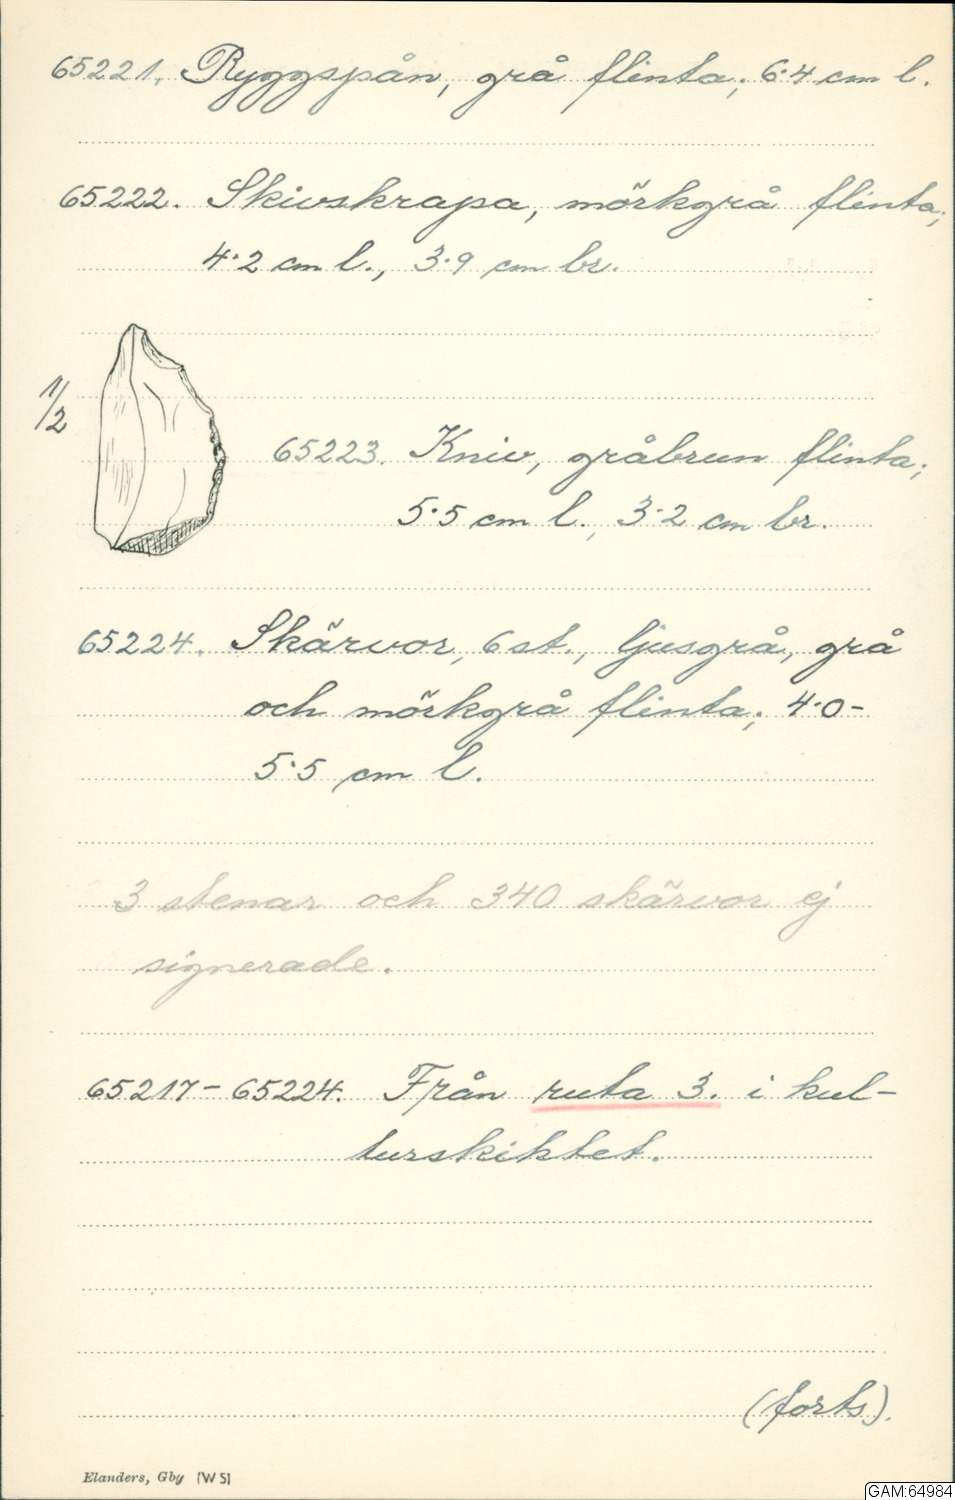 65221. Ryggspån, grå flinta; 6·4 cm l.
65222. Skivskrapa, mörkgrå flinta;
4·2 cm l., 3·9 cm br.
1/2
65223. Kniv, gråbrun flinta;
5·5 cm l., 3·2 cm br.
65224. Skärvor, 6 st., ljusgrå, grå
och mörkgrå flinta; 4·0-
5·5 cm l.
3 stenar och 340 skärvor ej
signerade.
65217-65224. Från ruta 3. i kul-
turskiktet.
(forts).
Elanders, Gby [W 5]
GAM:64984